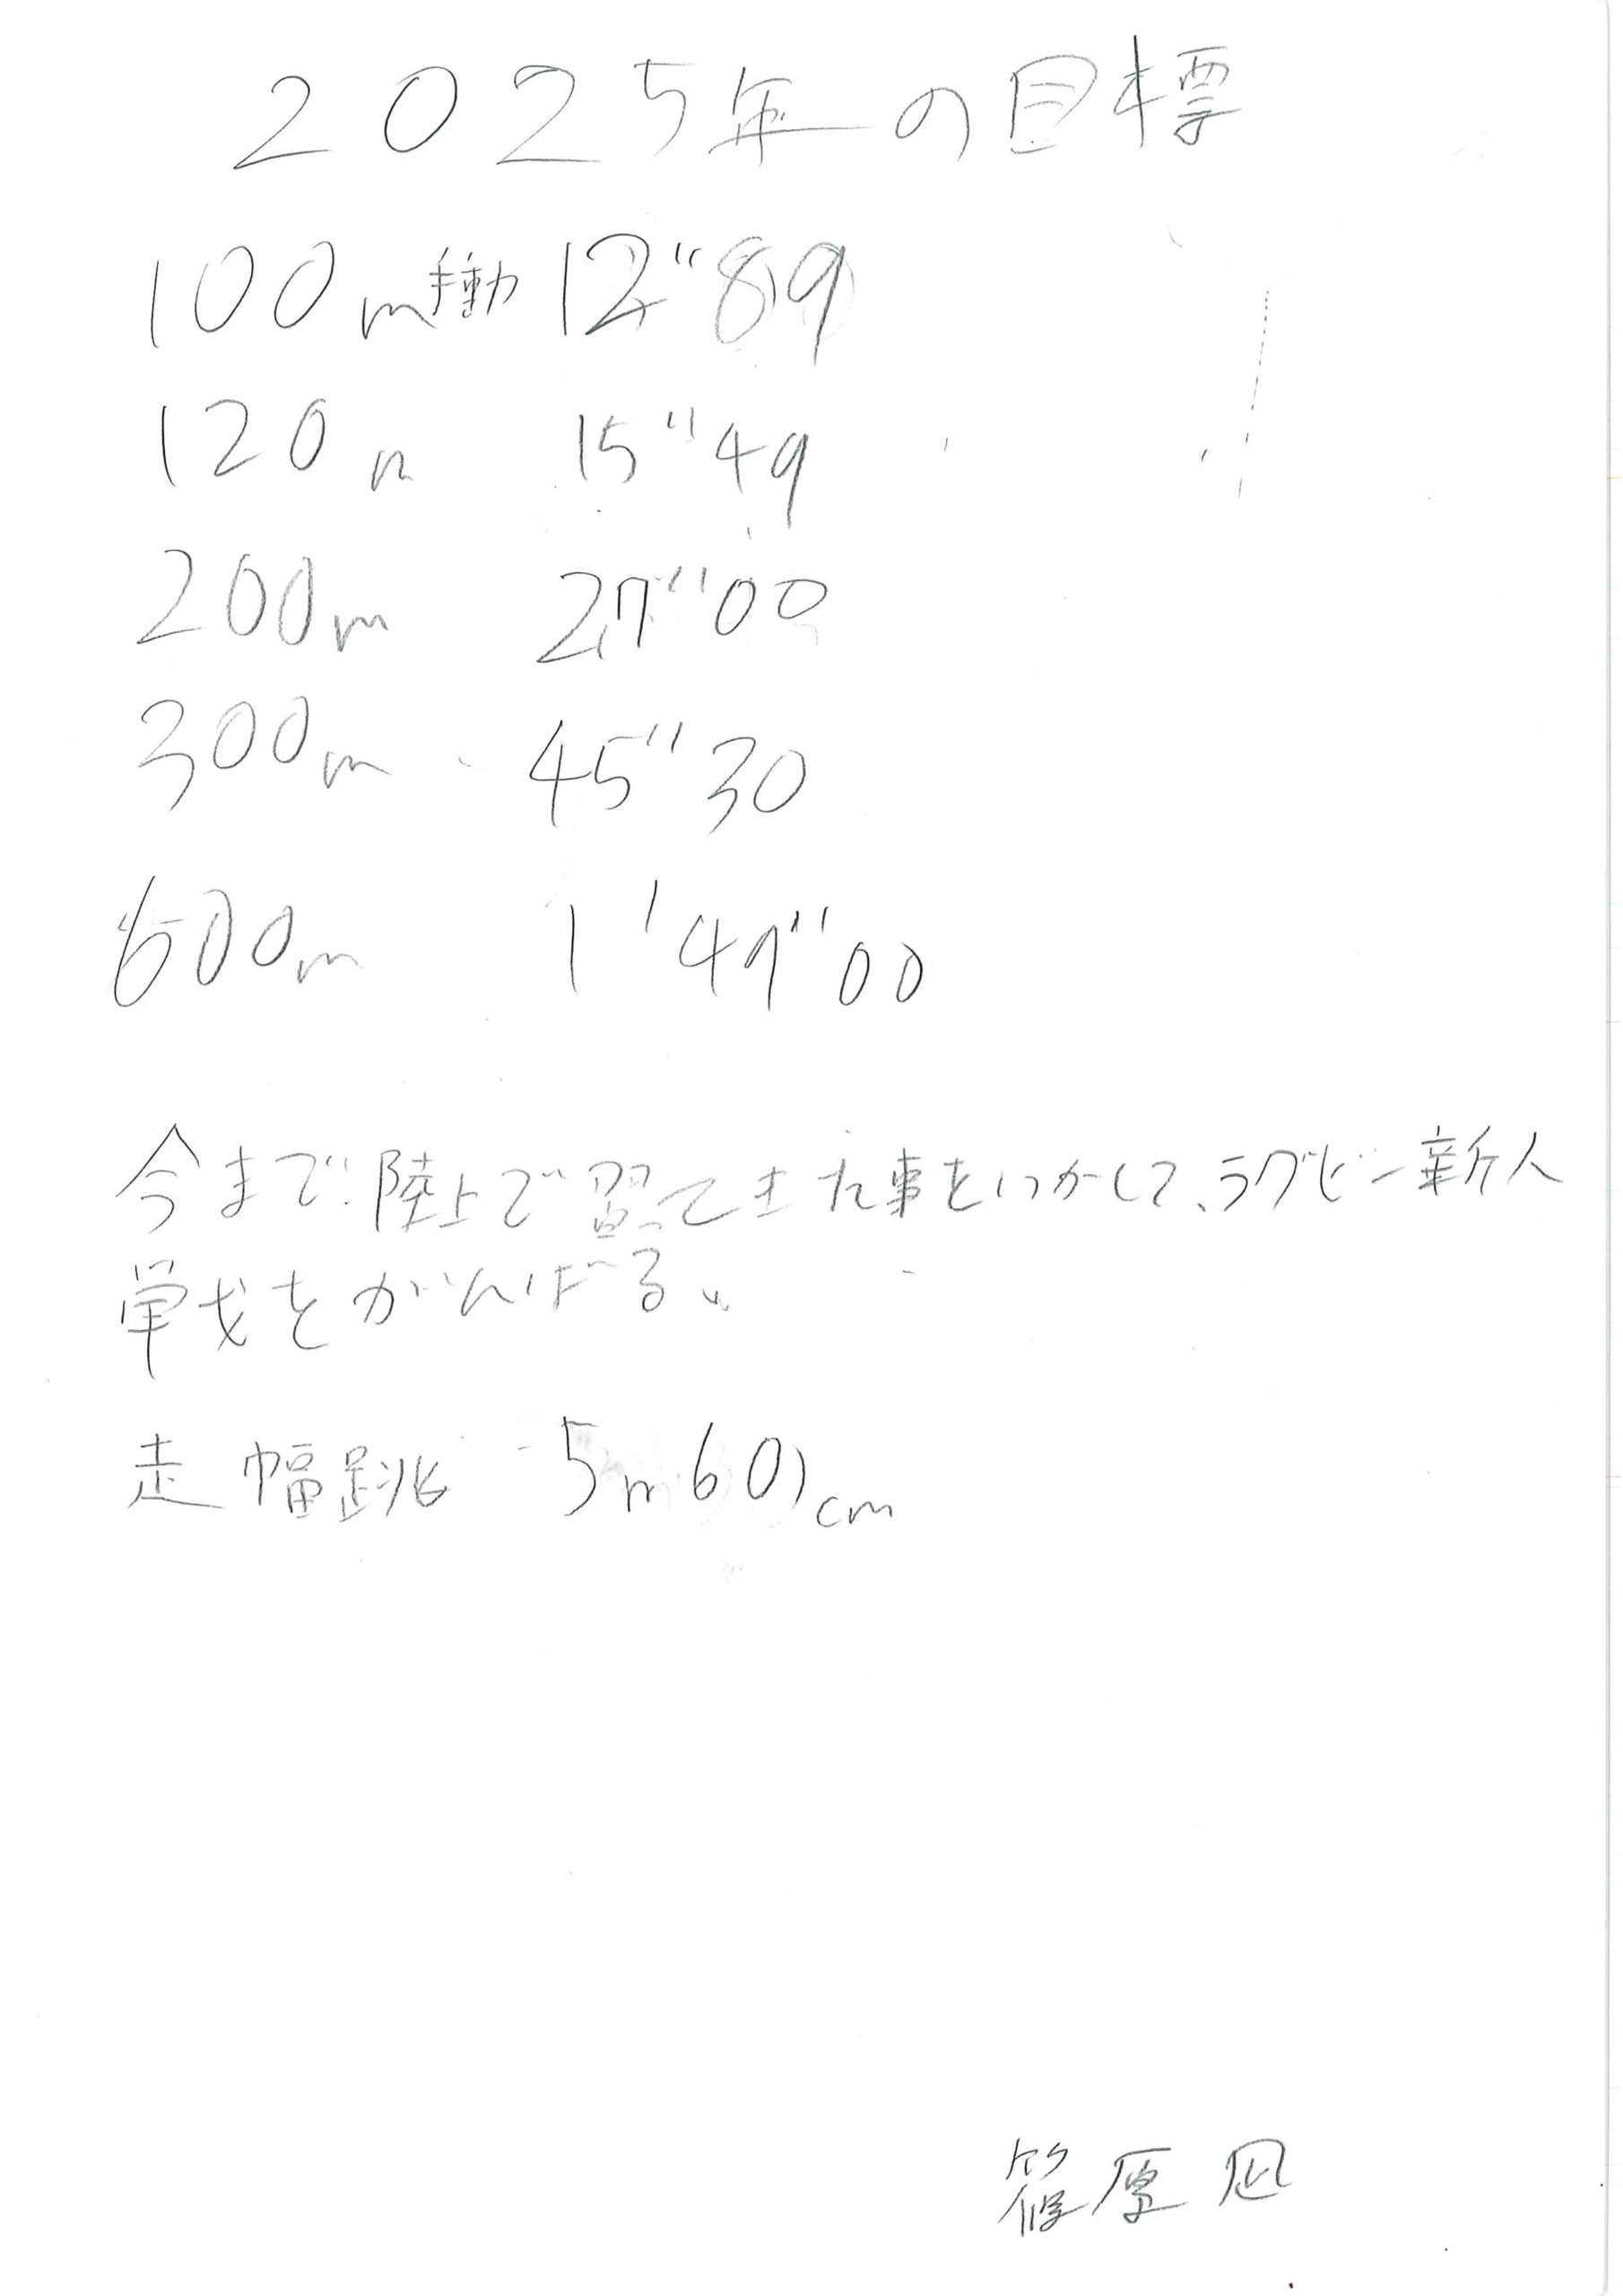 2025年の目標
100m手動 12"89
120m 15"49
200m 27"00
300m 45"30
600m 1'47"00
今まで陸上で習ってきた事をいかして、ラグビー新人
単戈をがんばる。
走幅跳 5m60cm
篠原